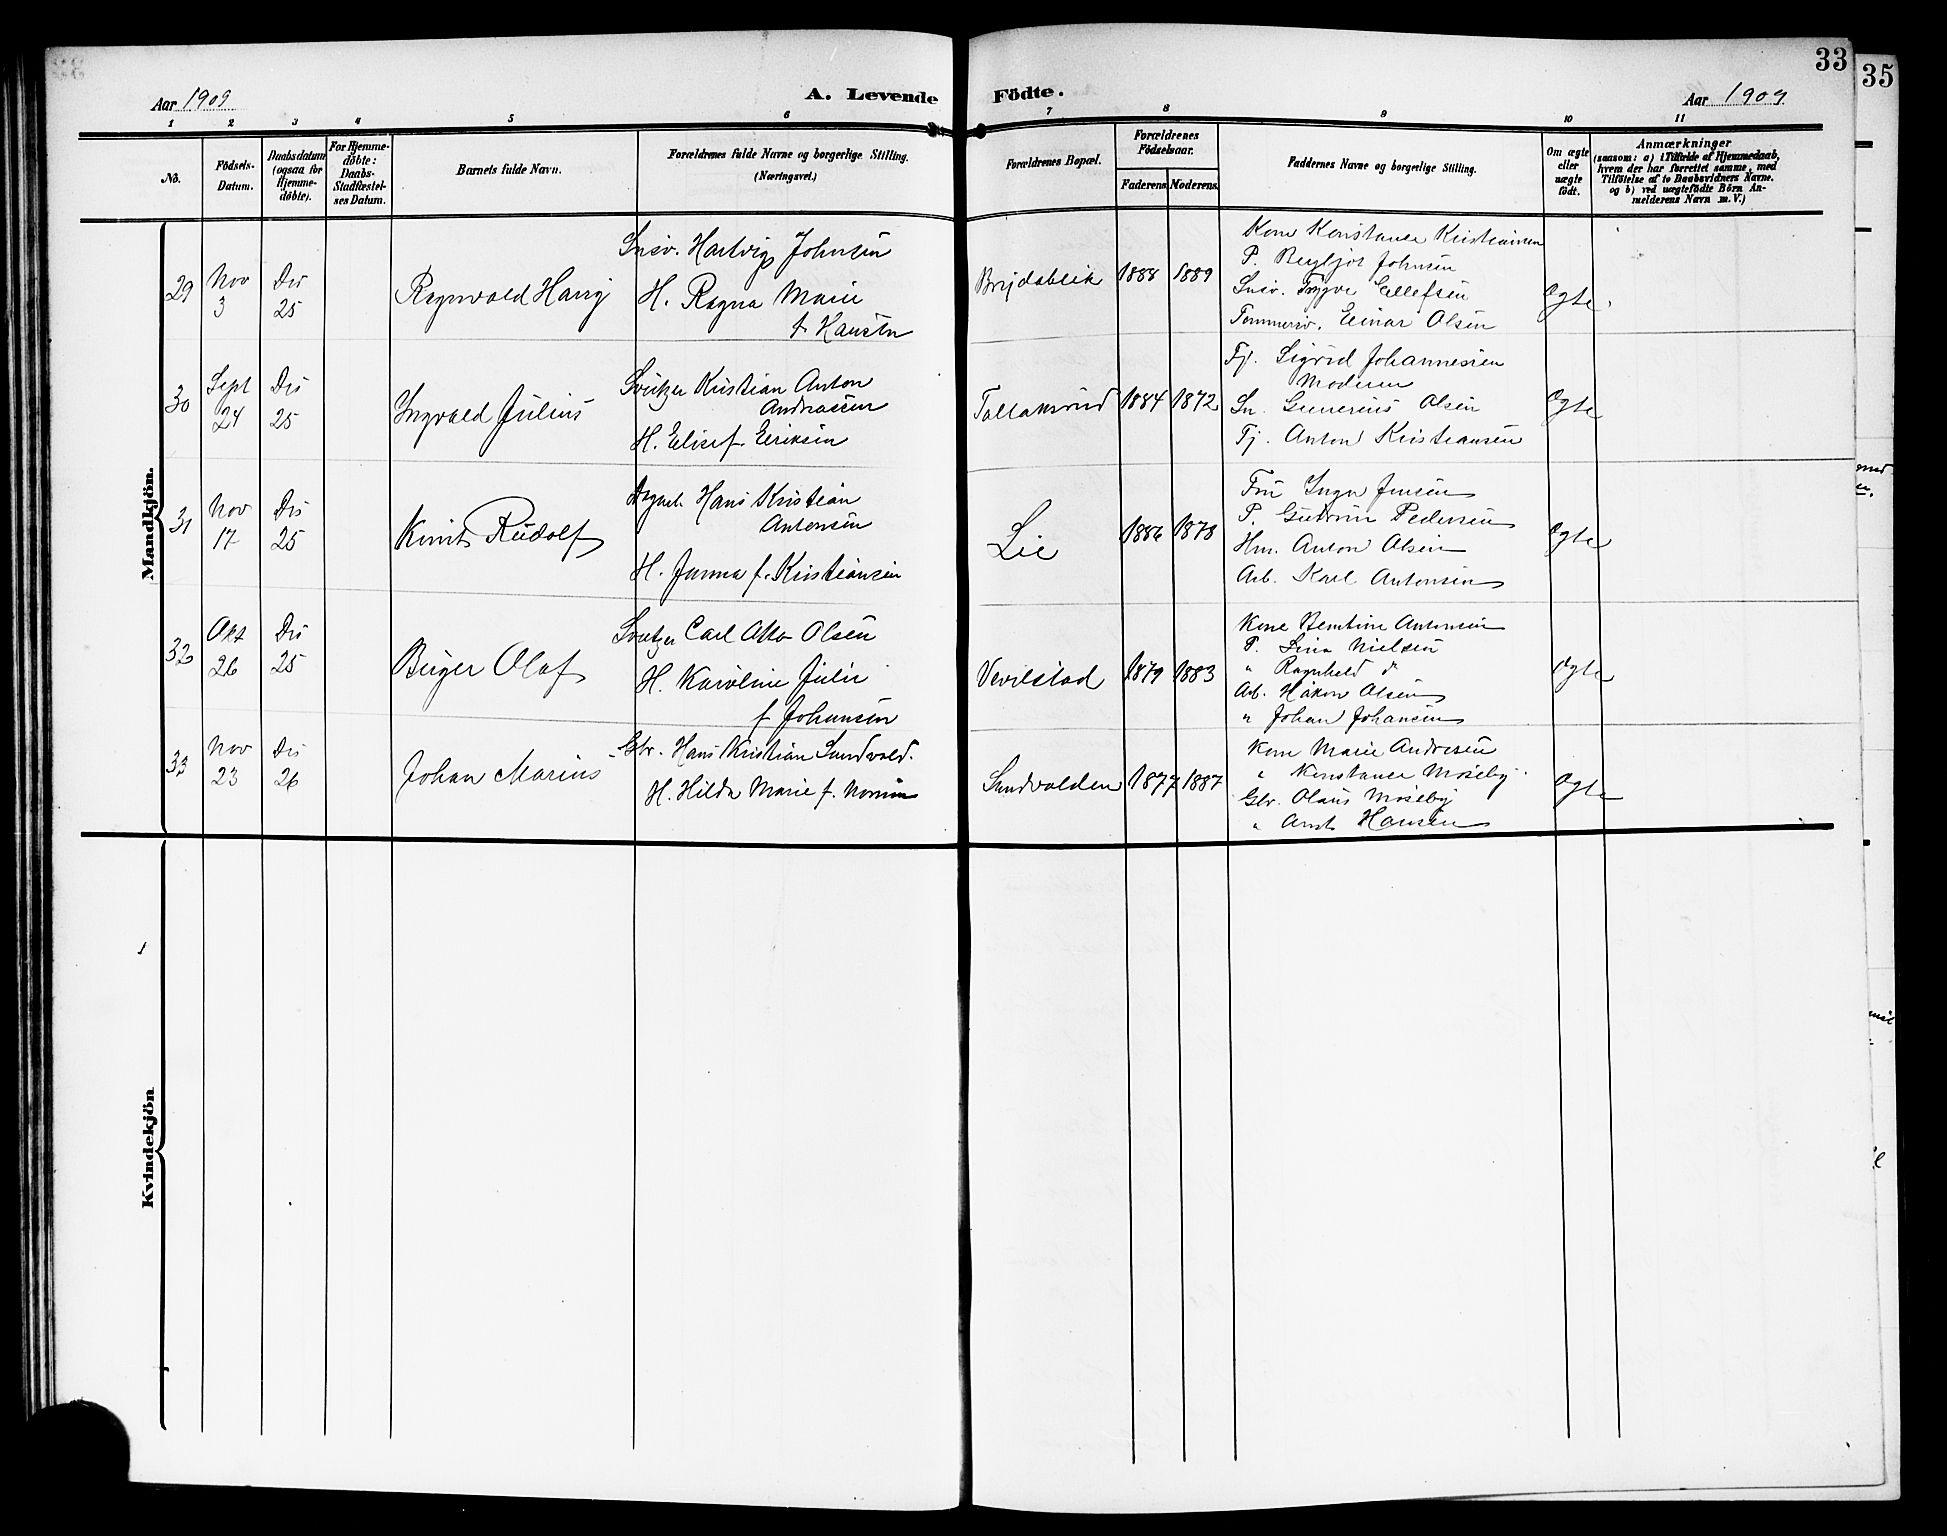 33
35
Aar 1909
A. Levende
Födte.
Aar 1909
1 2 3 4 5 6 7 8 9 10 11
No.
Födsels-
Datum.
Daabsdatum
(ogsaa for
Hjemme-
døbte).
For Hjemme-
døbte:
Daabs-
Stadfæstel-
ses Datum.
Barnets fulde Navn.
Forældrenes fulde Navne og borgerlige Stilling.
(Næringsvei.)
Forældrenes Bopæl.
Forældrenes
Födselsaar.
Faderens. Moderens.
Faddernes Navne og borgerlige Stilling.
Om ægte
eller
uægte
født.
Anmærkninger
(saasom: a) i Tilfælde af Hjemmedaab,
hvem der har forrettet samme, med
Tilføielse af to Daabsvidners Navne.
og b) ved uægtefødte Börn An-
melderens Navn m. V.)
Mandkjön.
29
Nov
3
Ds
25
Ragnvald Harry
Snsv. Hartvig Johnsen
H. Ragna Marie
f. Hansen
Brejdablik
1888 1889
Kone Konstance Kristiansen
P. Bergljot Johnsen
Snsv. Trygve Ellefsen
Tømmersv. Einar Olsen
Ægte
30
Sept
24
Ds
25
Ingvald Julius
Sveitzer Kristian Anton
Andreassen
H. Elise f. Eriksen
Tollaksrud
1884 1872
Tj. Sigrid Johannesen
Moderen
Sn. Gunerius Olsen
Tj. Anton Kristiansen
Ægte
31
Nov
17
Ds
25
Knut Rudolf
Hans Kristian
Antonsen
H. Janna f. Kristiansen
Lie
1886 1878
Fru Inga Jensen
P. Gudrun Pedersen
Hm. Anton Olsen
Arb. Karl Antonsen
Ægte
32
Okt
26
Ds
25
Birger Olaf
Sveitzer Carl Otto Olsen
H. Karoline Julie
f. Johansen
Vevelstad
1879 1883
Kone Berntine Antonsen
P. Lina Nielsen
" Ragnhild do
Arb. Håkon Olsen
" Johan Johansen
Ægte
33
Nov
23
Ds
26
Johan Marius
Gbr. Hans Kristian Sundvold.
H. Hilda Marie f.
Sundvolden
1877 1887
Kone Marie Andresen
" Konstance Moseby
Gbr. Olaus Moseby
" Arnt Hansen
Ægte
Kvindekjön